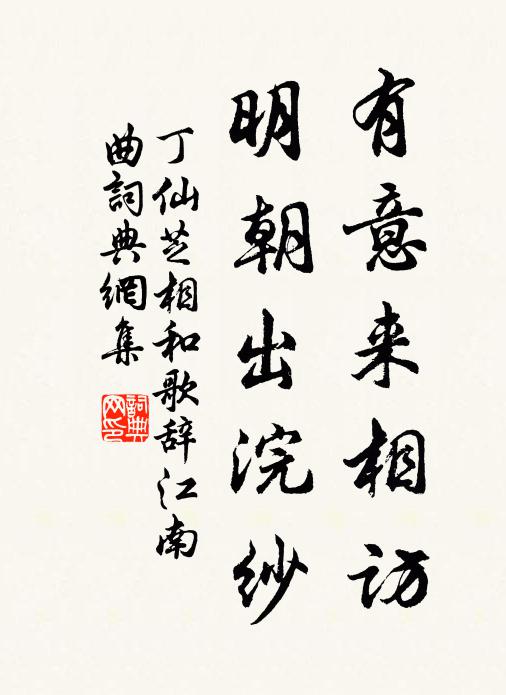 有意来相访
明朝出浣纱
丁仙芝相和歌辞江南
曲詞典網集
詞典
网印